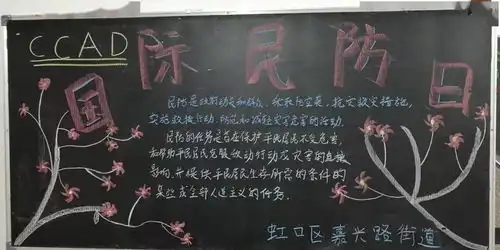 CCAD
国际民防日
民防是政府动员和群众、采取防空袭、抢灾救灾措施,
实施救援行动、防范和减轻灾害危害的活动.
民防的任务是旨在保护平民居民不受危害,
和帮助平民居民克服敌对行动或灾害的直接
影响,并提供平民居民生存所需的条件的
某些或全部人道主义的任务.
虹口区嘉兴路街道